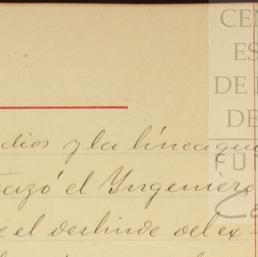 CEN
ES
DE
DE
FU
Ca
dios y la línea que
trazó el Yngeniero
e el deslinde del ex-